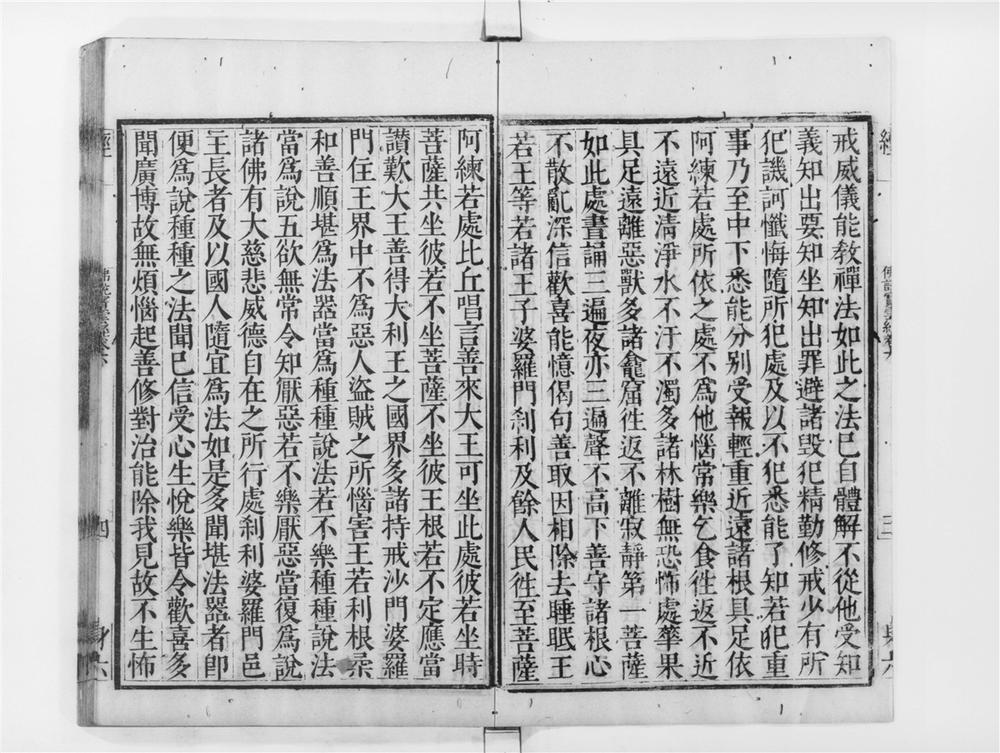 戒威儀能教禪法如此之法已自體解不從他受知
義知出要知坐知出罪避諸毀犯精勤修戒少有所
犯譏訶懺悔隨所犯處及以不犯悉能了知若犯重
事乃至中下悉能分別受報輕重近遠諸根具足依
阿練若處所依之處不為他惱常樂乞食徃返不近
不遠近清淨水不汙不濁多諸林樹無恐怖處華果
具足遠離惡獸多諸龕窟徃返不離寂靜第一菩薩
如此處晝誦三遍夜亦三遍聲不高下善守諸根心
不散亂深信歡喜能憶偈句善取因相除去睡眠王
若王等若諸王子婆羅門剎利及餘人民徃至菩薩
阿練若處比丘唱言善來大王可坐此處彼若坐時
菩薩共坐彼若不坐菩薩不坐彼王根若不定應當
讚歎大王善得大利王之國界多諸持戒沙門婆羅
門住王界中不為惡人盜賊之所惱害王若利根柔
和善順堪為法器當為種種說法若不樂種種說法
當為說五欲無常令知厭惡若不樂厭惡當復為說
諸佛有大慈悲威德自在之所行處剎利婆羅門邑
主長者及以國人隨宜為法如是多聞堪法器者即
便為說種種之法聞已信受心生悅樂皆令歡喜多
聞廣博故無煩惱起善修對治能除我見故不生怖
經
四
身六